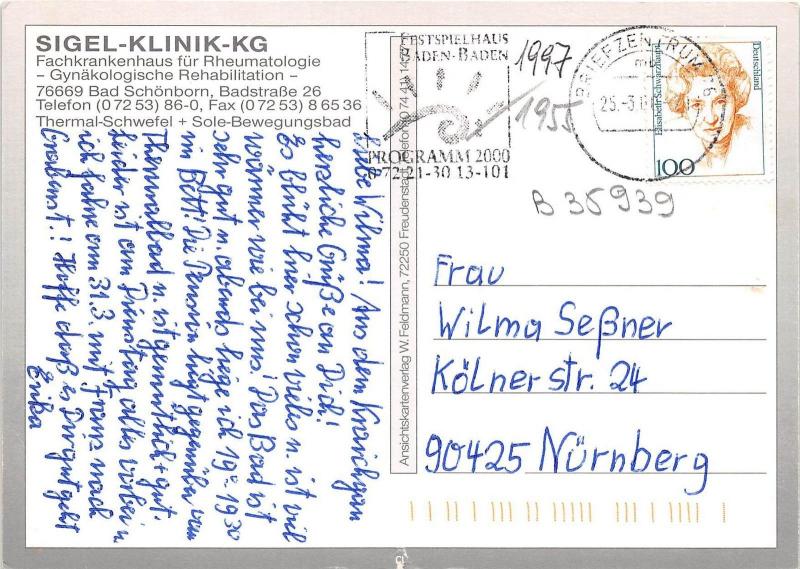 SIGEL-KLINIK-KG
Fachkrankenhaus für Rheumatologie
– Gynäkologische Rehabilitation –
76669 Bad Schönborn, Badstraße 26
Telefon (0 72 53) 86-0, Fax (0 72 53) 8 65 36
Thermal-Schwefel + Sole-Bewegungsbad
Liebe Wilma! Aus dem Kraichgau
herzliche Grüße an Dich!
Es blüht hier schon vieles u. ist viel
wärmer wie bei uns! Das Bad ist
sehr gut u. abends liege ich 19°-1930
im Bett! Die Pension liegt gegenüber vom
Thermalbad u. ist gemütlich + gut.
Leider ist am Dienstag alles vorbei u.
ich fahre am 31.3. mit Franz nach
! Hoffe daß es Dir gut geht
Erika
Ansichtskartenverlag W. Feldmann, 72250 Freudenstadt, Telefon 0 74 43
FESTSPIELHAUS
BADEN-BADEN
PROGRAMM 2000
0 72 21-30 13-101
1997
1955
BRIEFZENTRUM 76
25.-3.
Elisabeth Schwarzhaupt
Deutschland
100
B 35939
Frau
Wilma Seßner
Kölnerstr. 24
90425 Nürnberg